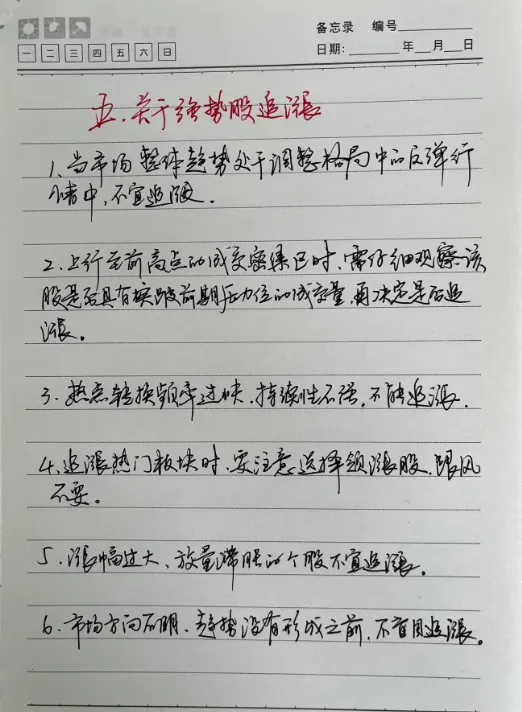 备忘录 编号
一 二 三 四 五 六 日
日期: 年 月 日
五、关于强势股追涨
1、当市场整体趋势处于调整格局中的反弹行
情中,不宜追涨。
2、上行至前高点的成交密集区时、需仔细观察该
股是否具有突破前期压力位的成交量,再决定是否追
涨。
3、热点转换频率过快、持续性不强,不能追涨.
4、追涨热门板块时、要注意选择领涨股、跟风
不要。
5、涨幅过大、放量滞胀的个股不宜追涨。
6、市场方向不明、趋势没有形成之前,不盲目追涨。